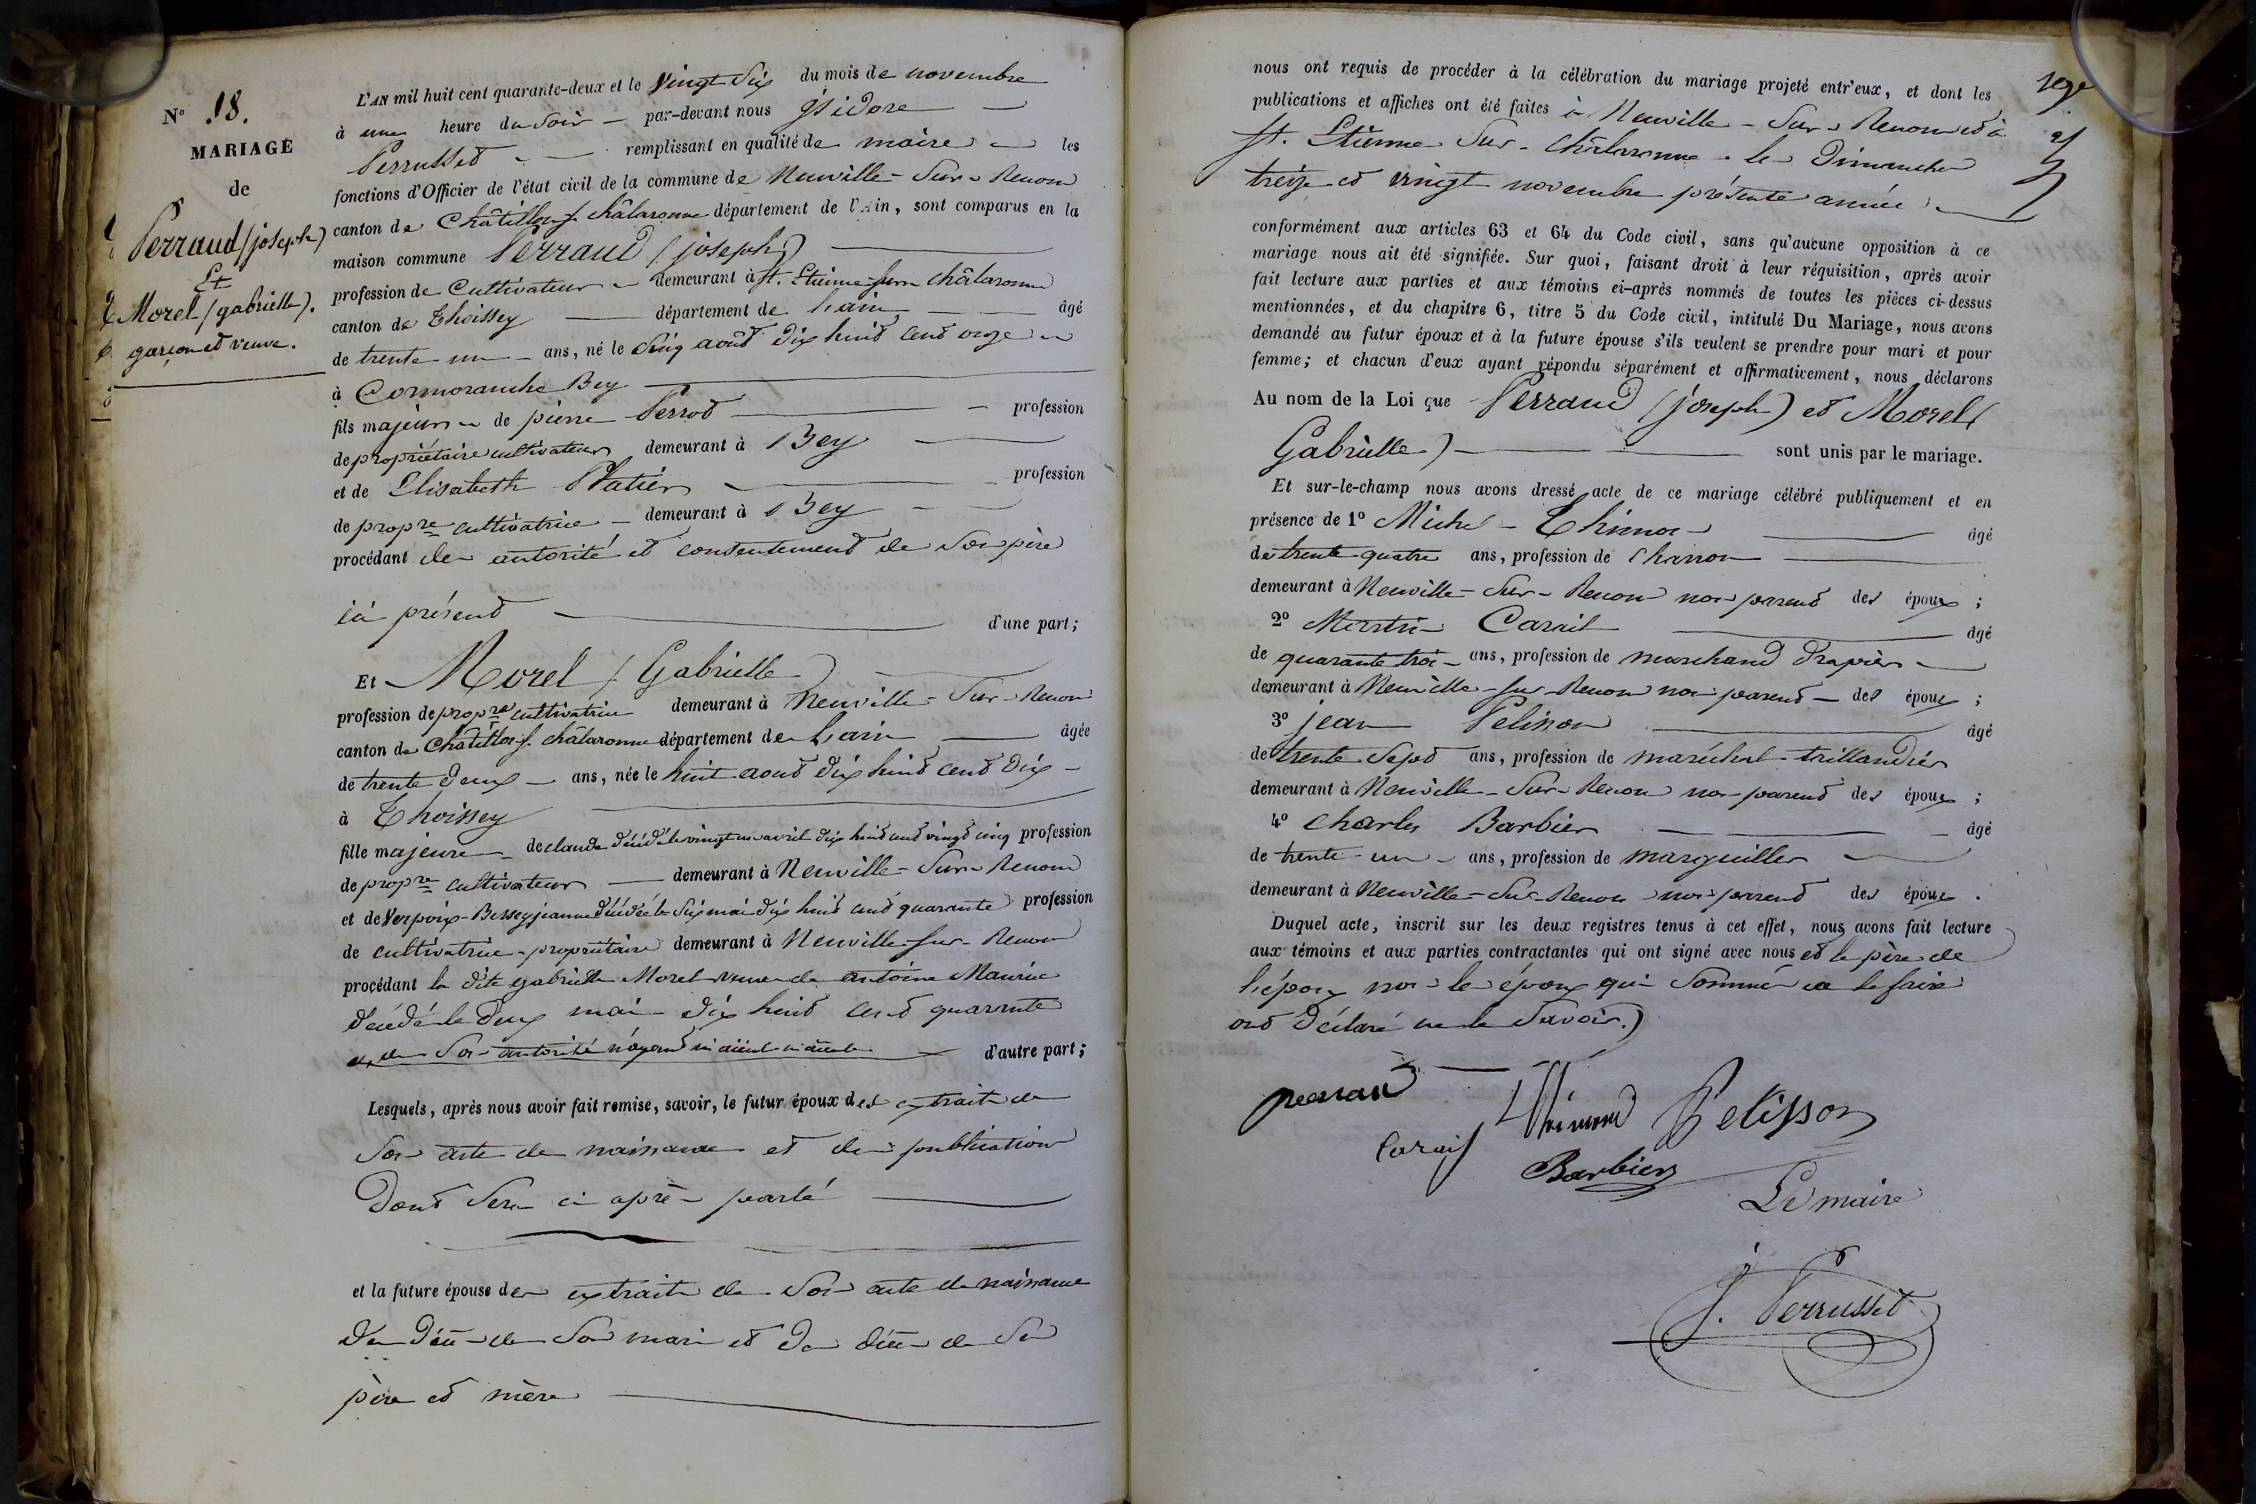 N° 18.
MARIAGE
de
Perraud (joseph)
Et
Morel (gabrielle).
garçon et veuve.
L'AN mil huit cent quarante-deux et le vingt Six du mois de novembre
à une heure du Soir par-devant nous isidore
Perrusset remplissant en qualité de maire les
fonctions d'Officier de l'état civil de la commune de Neuville-Sur-Renom
canton de Châtillon s. châlaronne département de l'Ain, sont comparus en la
maison commune Perraud (joseph)
profession de Cultivateur demeurant à st. Etienne sur châlaronne
canton de Thoissey département de Lain âgé
de trente un ans, né le Cinq août dix huit cent onze
à Cormoranche Bey
fils majeur de pierre Perrod profession
de propriétaire cultivateur demeurant à Bey
et de Elisabeth Platier profession
de propre cultivatrice demeurant à Bey
procédant de autorité et consentement de Son père
ici présent d'une part;
Et Morel (Gabrielle)
profession de propre cultivatrice demeurant à Neuville-Sur-Renom
canton de Châtillon s. châlaronne département de Lain âgée
de trente deux ans, née le huit aout dix huit cent dix
à Thoissey
fille majeure de claude décédé le vingt un avril dix huit cent vingt cinq profession
de propre cultivateur demeurant à Neuville-Sur-Renom
et de Verpoix-Bessey jeanne décédée le Six mai dix huit cent quarante profession
de cultivatrice-propriétaire demeurant à Neuville-sur-Renom
procédant la dite gabrielle Morel veuve de antoine Maurice
décédé le deux mai dix huit cent quarante
et de Son autorité n'ayant ni aïeul ni aïeule d'autre part;
Lesquels, après nous avoir fait remise, savoir, le futur époux des extrait de
Son acte de naissance et de publication
dont Sera ci après parlé
et la future épouse de extrait de Son acte de naissance
du décè de Son mari et du décè de Ses
père et mère
nous ont requis de procéder à la célébration du mariage projeté entr'eux, et dont les
publications et affiches ont été faites à Neuville-Sur-Renom et à
st. Etienne Sur-Châlaronne le Dimanche
treize et vingt novembre présente année
conformément aux articles 63 et 64 du Code civil, sans qu'aucune opposition à ce
mariage nous ait été signifiée. Sur quoi, faisant droit à leur réquisition, après avoir
fait lecture aux parties et aux témoins ci-après nommés de toutes les pièces ci-dessus
mentionnées, et du chapitre 6, titre 5 du Code civil, intitulé Du Mariage, nous avons
demandé au futur époux et à la future épouse s'ils veulent se prendre pour mari et pour
femme; et chacun d'eux ayant répondu séparément et affirmativement, nous déclarons
Au nom de la Loi que Perraud (joseph) et Morel (
Gabrielle) sont unis par le mariage.
Et sur-le-champ nous avons dressé acte de ce mariage célébré publiquement et en
présence de 1° Michel Thimon âgé
de trente quatre ans, profession de Charron
demeurant à Neuville-Sur-Renom non parent des époux;
2° Martin Carait âgé
de quarante troi ans, profession de marchand drapier
demeurant à Neuville-sur-Renom non parent des époux;
3° jean Pelisson âgé
de trente Sept ans, profession de maréchal-taillandier
demeurant à Neuville-Sur-Renom non parent des époux;
4° charles Barbier âgé
de trente un ans, profession de marguiller
demeurant à Neuville-Sur-Renom non parent des époux.
Duquel acte, inscrit sur les deux registres tenus à cet effet, nous avons fait lecture
aux témoins et aux parties contractantes qui ont signé avec nous et le père de
l'époux non le époux qui Sommé de le faire
ont déclaré ne le Savoir.)
perraud
Thimond Pelisson
Carait
Barbier
Le maire
J. Perrusset